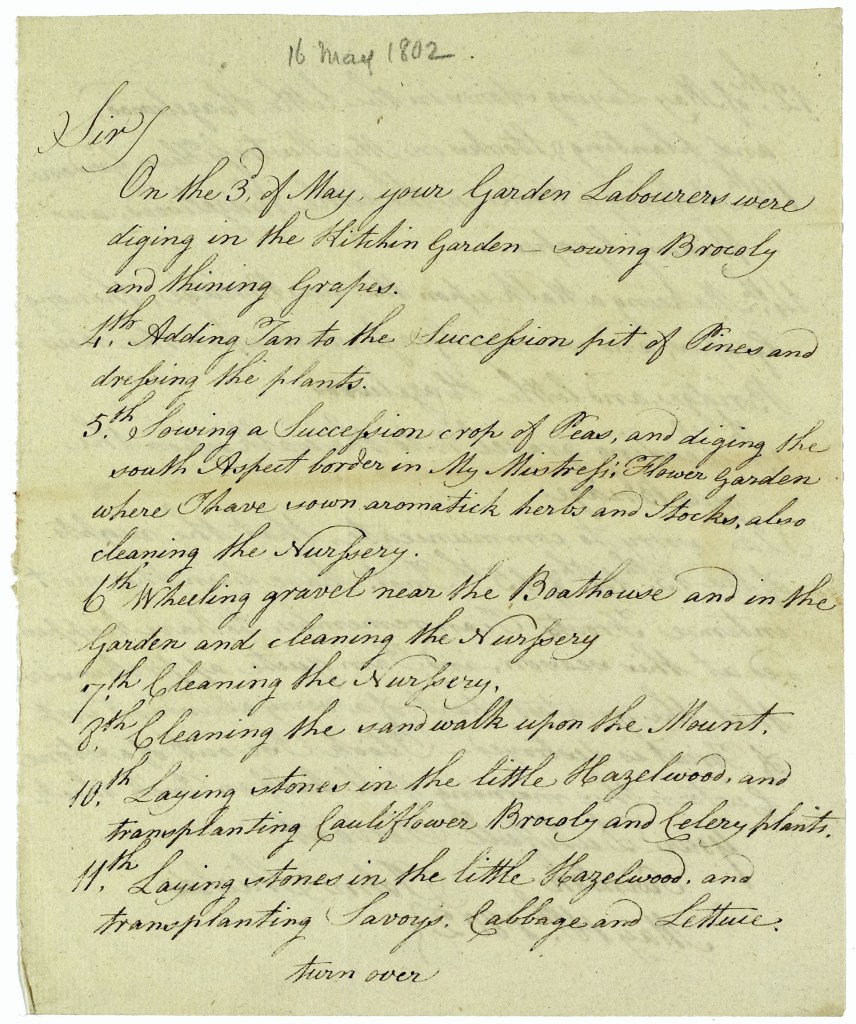 16 May 1802.
Sir
On the 3d. of May, your Garden Labourers were
diging in the Kitchin Garden – sowing Brocoly
and thining Grapes.
4.th Adding Tan to the Succeſsion pit of Pines and
dreſsing the plants.
5.th Sowing a Succeſsion crop of Peas, and diging the
south Aspect border in My Mistreſs's Flower Garden
where I have sown aromatick herbs and Stocks, also
cleaning the Nurſsery.
6th Wheeling gravel near the Boathouse and in the
Garden and cleaning the Nurſsery
7.th Cleaning the Nurſsery.
8.th Cleaning the sand walk upon the Mount.
10.th Laying stones in the little Hazelwood, and
transplanting Cauliflower Brocoly and Celery plants.
11.th Laying stones in the little Hazelwood, and
transplanting Savoys, Cabbage and Lettuce.
turn over